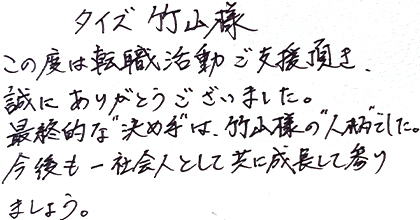 タイズ 竹山様
この度は転職活動ご支援頂き、
誠にありがとうございました。
最終的な"決め手"は、竹山様の"人柄"でした。
今後も一社会人として共に成長して参り
ましょう。